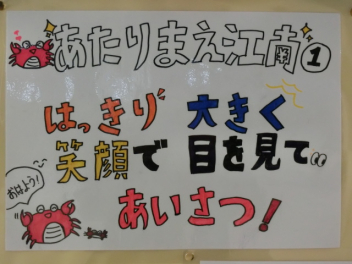 あたりまえ江南①
はっきり 大きく
笑顔で 目を見て
おはよう!
あいさつ!